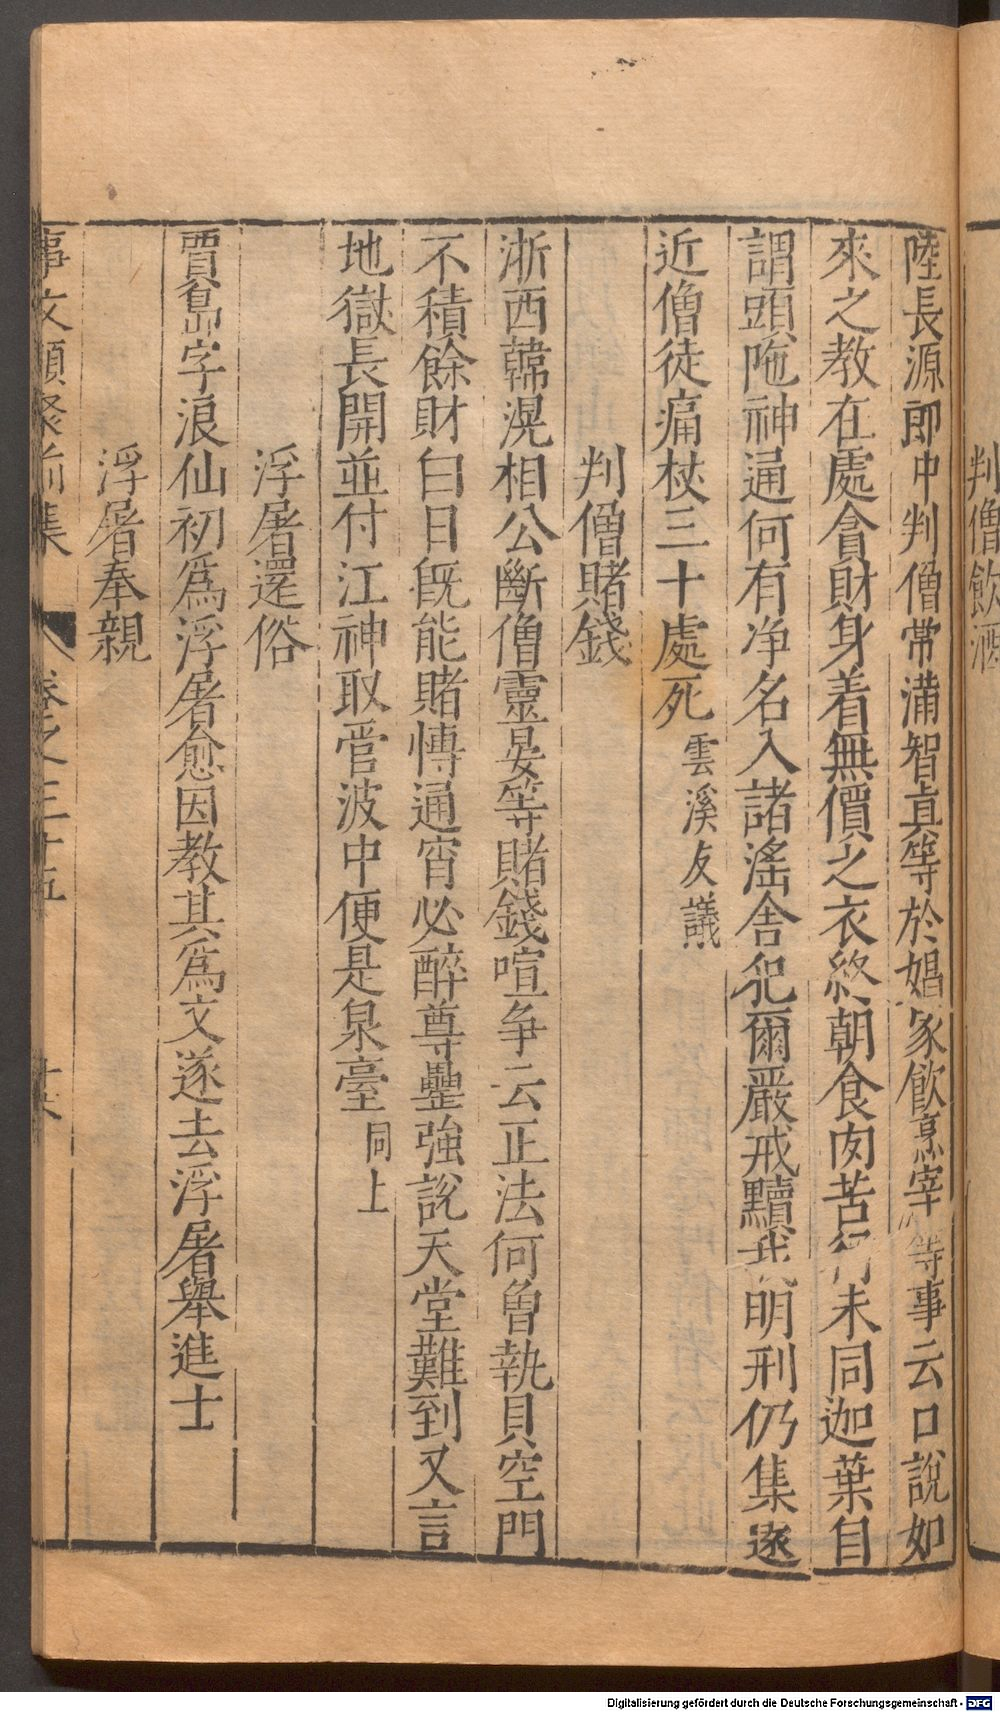 判僧飲酒
陸長源郎中判僧常滿智真等於娼家飲烹宰等事云口說如
來之教在處貪財身着無價之衣終朝食肉苦行未同迦葉自
謂頭陁神通何有净名入諸滛舍犯爾嚴戒黷我明刑仍集遠
近僧徒痛杖三十處死雲溪友議
判僧賭錢
浙西韓滉相公斷僧靈晏等賭錢喧争云正法何曾執貝空門
不積餘財白日旣能賭愽通宵必醉尊罍強說天堂難到又言
地獄長開並付江神收管波中便是泉臺同上
浮屠還俗
賈島字浪仙初爲浮屠愈因教其爲文遂去浮屠舉進士
浮屠奉親
事文類聚前集 卷之三十五
Digitalisierung gefördert durch die Deutsche Forschungsgemeinschaft - DFG